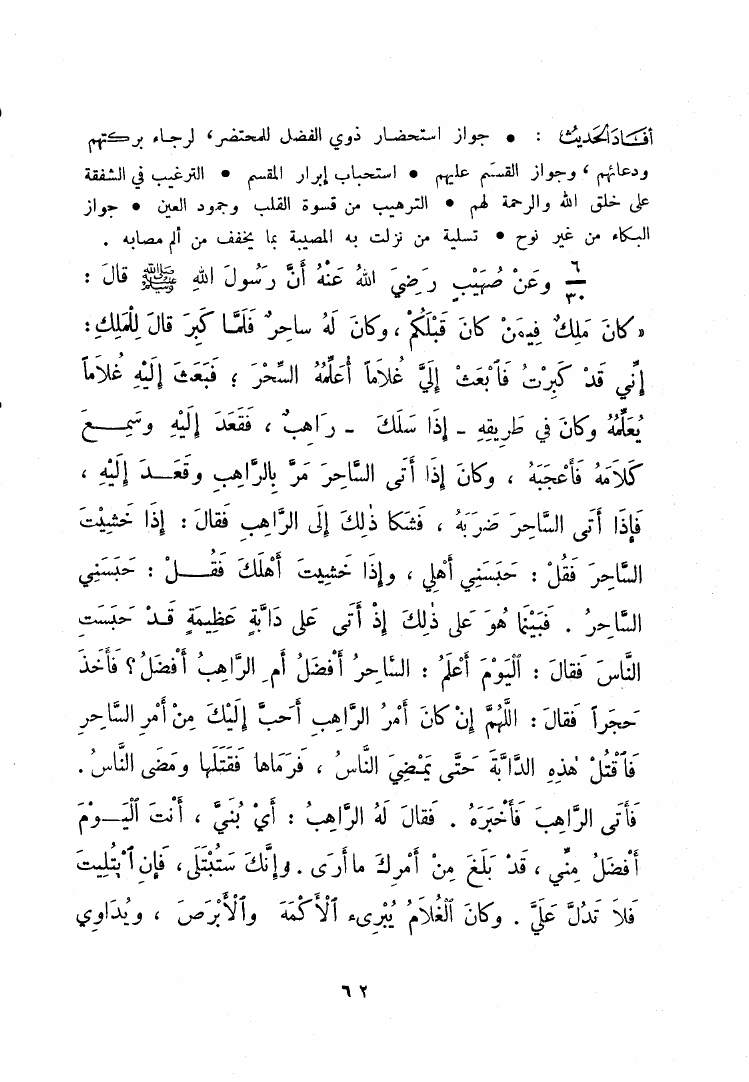 أفَادَ الحَديثُ : • جواز استحضار ذوي الفضل للمحتضر، لرجاء بركتهم
ودعائهم، وجواز القسَم عليهم • استحباب إبرار المقسم • الترغيب في الشفقة
على خلق الله والرحمة لهم • الترهيب من قسوة القلب وجمود العين • جواز
البكاء من غير نوح • تسلية من نزلت به المصيبة بما يخفف من ألم مصابه .
٦/٣٠ وعَنْ صُهَيْبٍ رَضِيَ اللهُ عَنْهُ أَنَّ رَسُولَ اللهِ ﷺ قالَ :
« كانَ مَلِكٌ فِيمَنْ كانَ قَبْلَكُمْ ، وكانَ لَهُ ساحِرٌ فَلَمَّا كَبِرَ قالَ لِلْمَلِكِ :
إنِّي قَدْ كَبِرْتُ فَٱبْعَثْ إلَيَّ غُلاَماً أُعَلِّمْهُ السِّحْرَ ؛ فَبَعَثَ إلَيْهِ غُلاَماً
يُعَلِّمُهُ وكانَ في طَرِيقِهِ - إذَا سَلَكَ - رَاهِبٌ ، فَقَعَدَ إلَيْهِ وسَمِعَ
كَلاَمَهُ فَأَعْجَبَهُ ، وكانَ إذَا أتَى السَّاحِرَ مَرَّ بِالرَّاهِبِ وقَعَدَ إلَيْهِ ،
فَإذَا أَتَى السَّاحِرَ ضَرَبَهُ ، فَشَكا ذٰلِكَ إلَى الرَّاهِبِ فَقالَ : إذَا خَشِيْتَ
السَّاحِرَ فَقُلْ : حَبَسَنِي أَهْلِي ، وإذَا خَشِيتَ أَهْلَكَ فَقُلْ : حَبَسَنِي
السَّاحِرُ . فَبَيْنَمَا هُوَ عَلَى ذٰلِكَ إذْ أَتَى عَلَى دَابَّةٍ عَظِيمَةٍ قَدْ حَبَسَتِ
النَّاسَ فَقالَ : ٱلْيَوْمَ أَعْلَمُ : السَّاحِرُ أَفْضَلُ أمِ الرَّاهِبُ أفْضَلُ؟ فَأَخَذَ
حَجَراً فَقالَ : اللَّهُمَّ إنْ كانَ أَمْرُ الرَّاهِبِ أَحَبَّ إلَيْكَ مِنْ أَمْرِ السَّاحِرِ
فَٱقْتُلْ هٰذِهِ الدَّابَّةَ حَتَّى يَمْضِيَ النَّاسُ ، فَرَمَاها فَقَتَلَها ومَضَى النَّاسُ .
فَأَتَى الرَّاهِبَ فَأَخْبَرَهُ . فَقالَ لَهُ الرَّاهِبُ : أَيْ بُنَيَّ ، أَنْتَ ٱلْيَوْمَ
أَفْضَلُ مِنِّي ، قَدْ بَلَغَ مِنْ أَمْرِكَ ما أَرَى . وإنَّكَ سَتُبْتَلَى ، فَإنِ ٱبْتُلِيتَ
فَلاَ تَدُلَّ عَلَيَّ . وكانَ ٱلْغُلاَمُ يُبْرِىءُ ٱلْأَكْمَهَ وٱلْأَبْرَصَ ، ويُدَاوِي
٦٢